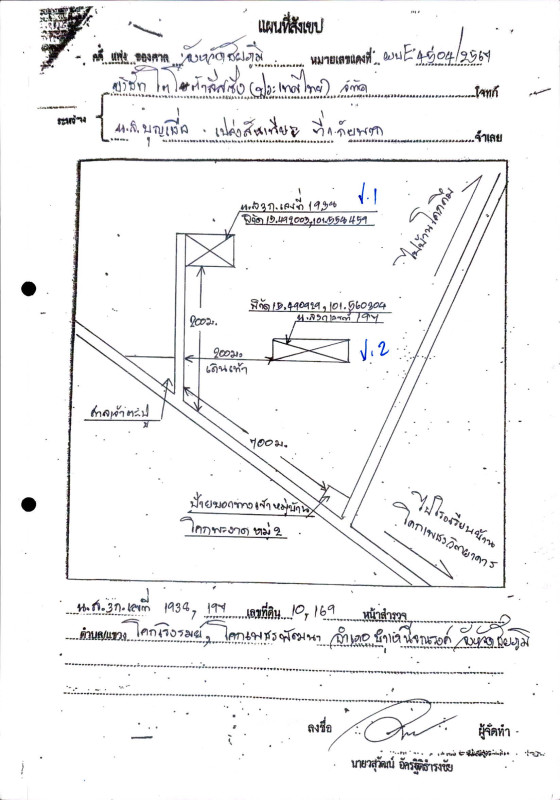 แผนที่สังเขป
คดี แพ่ง ของศาล จังหวัดชัยภูมิ หมายเลขแดงที่ ผบE 4504/2567
บริษัท โตโยต้าลีสซิ่ง (ประเทศไทย) จำกัด โจทก์
ระหว่าง
น.ส.บุญเลื่อ ที่ 1 กับพวก จำเลย
น.ส.3ก. เลขที่ 1934 ป.1
พิกัด 15.492003, 101.554459
ไปบ้านโคกคึม
พิกัด 15.490929, 101.560204
น.ส.3ก เลขที่ 197
ป.2
200 ม.
200 ม.
เดินเท้า
ศาลเจ้าตะปู
700 ม.
ป้ายบอกทางเข้าหมู่บ้าน
โคกพะงาด หมู่ 2
ไปโรงเรียนบ้าน
โคกเพชรวิทยาคาร
น.ส.3ก. เลขที่ 1934, 197 เลขที่ดิน 10, 169 หน้าสำรวจ
ตำบล/แขวง โคกเริงรมย์, โคกเพชรพัฒนา อำเภอ บำเหน็จณรงค์ จังหวัดชัยภูมิ
ลงชื่อ ผู้จัดทำ
นายวสุวัฒน์ อัครฐิติธำรงชัย